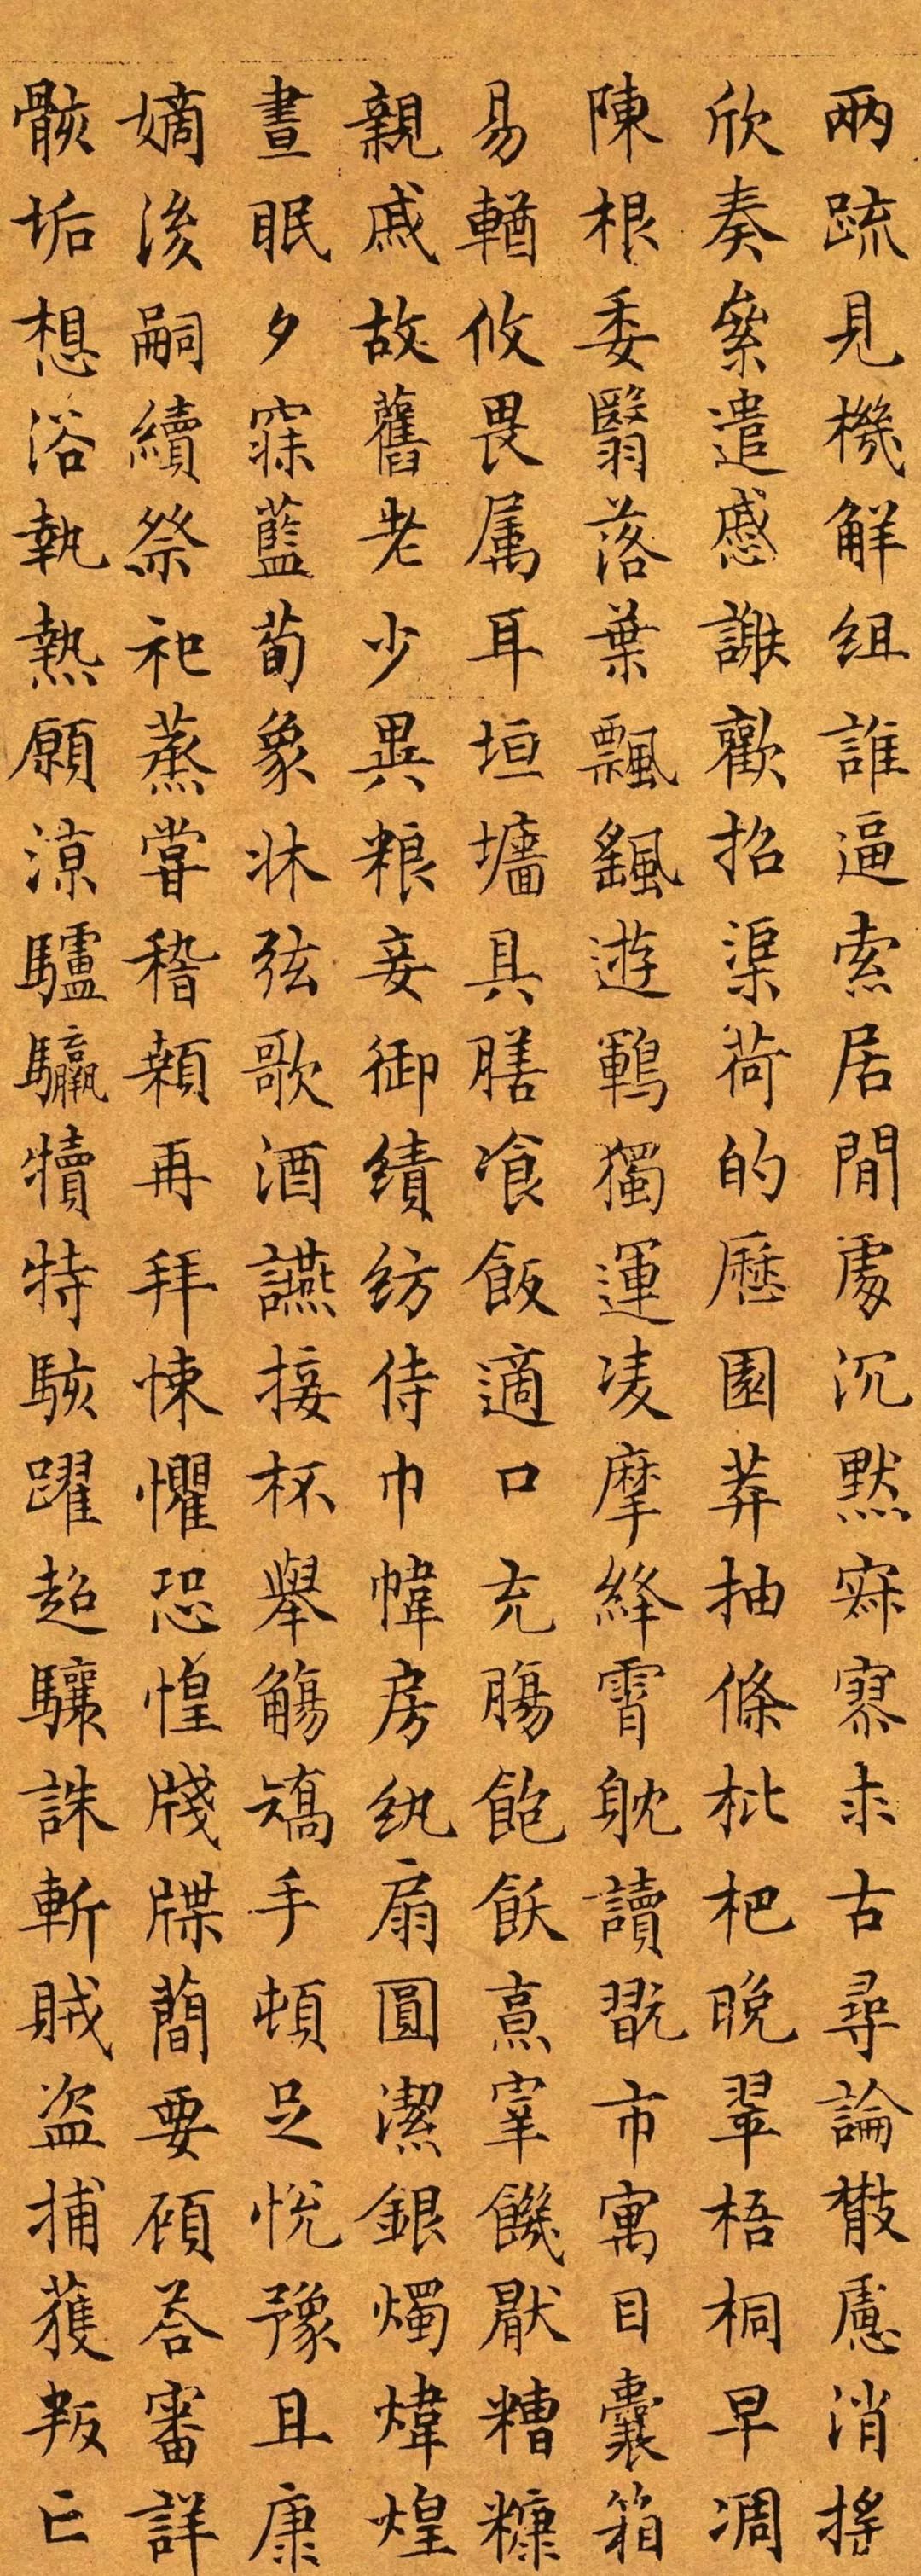 兩疏見機解组誰逼索居閒處沉黙寂寥求古尋論散慮消搖
欣奏累遣慼謝歡招渠荷的歷園莽抽條枇杷晚翠梧桐早凋
陳根委翳落葉飄颻遊鵾獨運凌摩絳霄耽讀翫市寓目囊箱
易輶攸畏属耳垣墻具膳飡飯適口充腸飽飫烹宰饑厭糟糠
親戚故舊老少異粮妾御績纺侍巾幃房紈扇圓潔銀燭煒煌
晝眠夕寐藍荀象牀弦歌酒讌接杯舉觴矯手頓足悅豫且康
嫡後嗣續祭祀蒸嘗稽顙再拜悚懼恐惶牋牒蕳要顧荅審詳
骸垢想浴執熱願涼驢驘犢特駭躍超驤誅斬賊盗捕獲叛亡